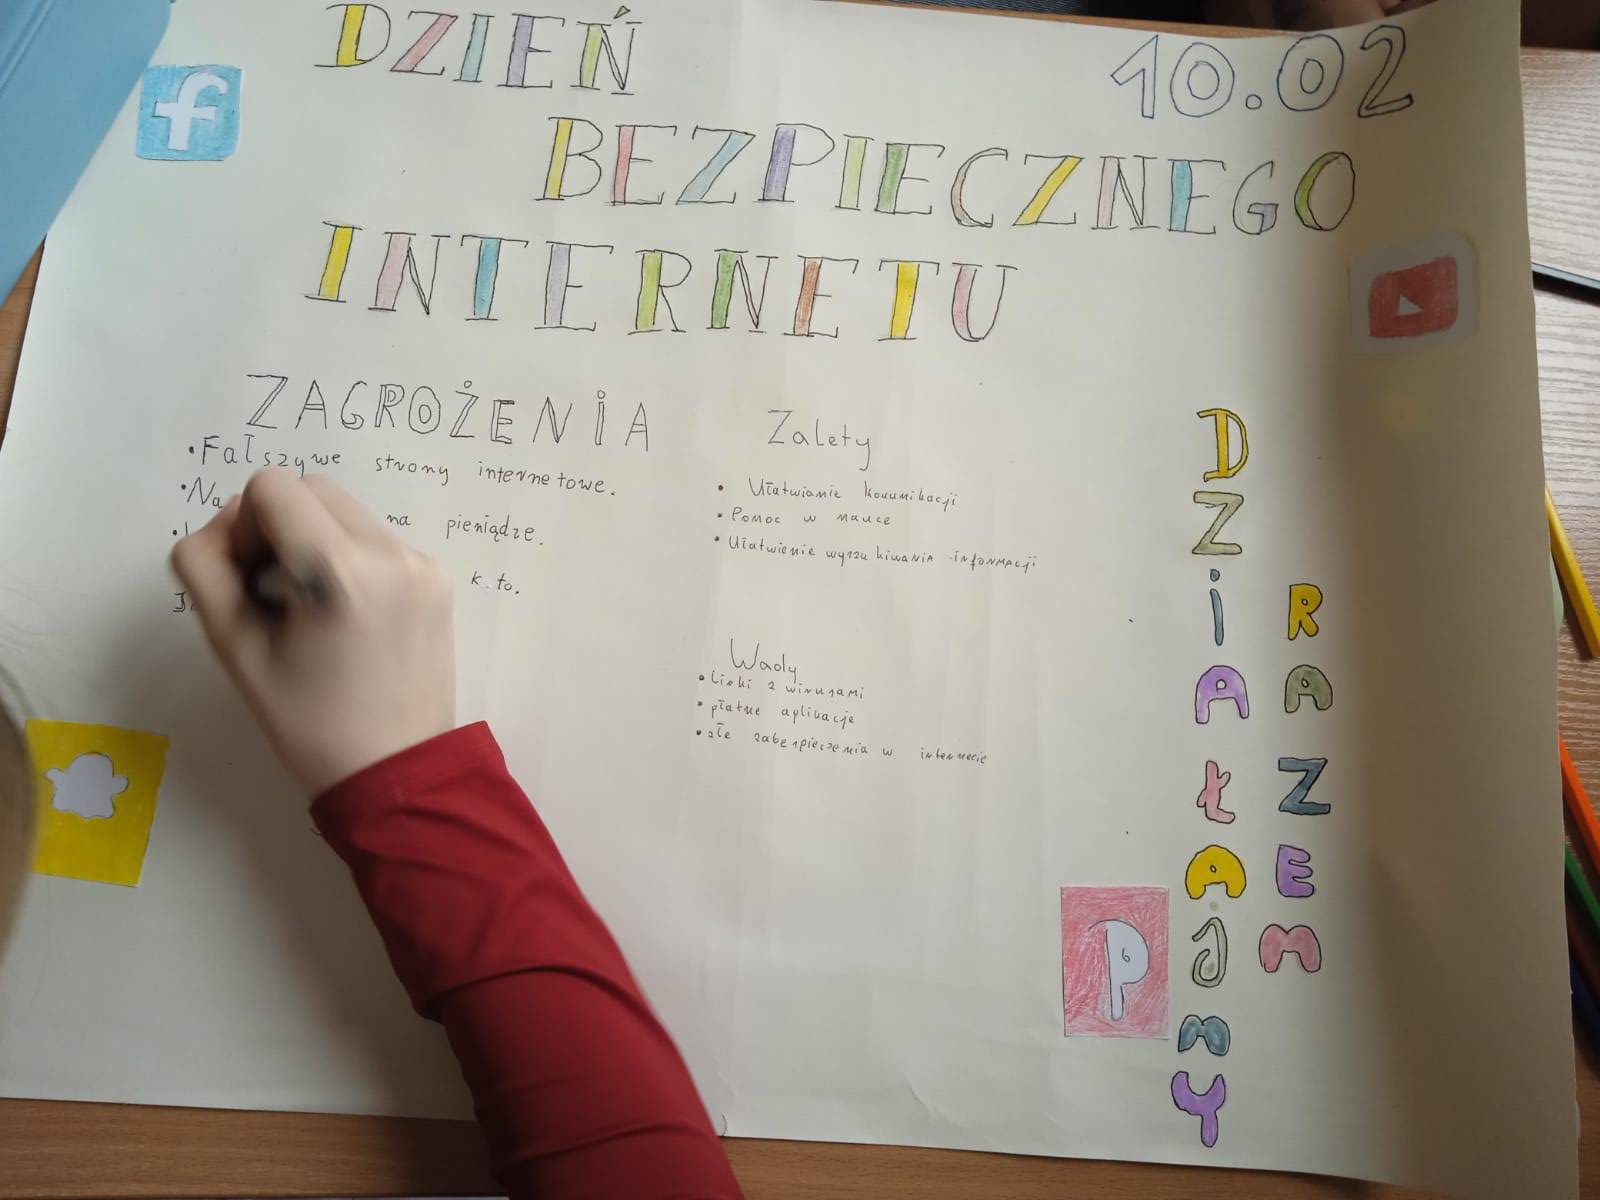 DZIEŃ
10.02
BEZPIECZNEGO
INTERNETU
ZAGROŻENIA
•Fałszywe strony internetowe.
•Na
na pieniądze.
k.to.
Zalety
• Ułatwianie komunikacji
• Pomoc w nauce
• Ułatwienie wyszukiwania informacji
Wady
• Linki z wirusami
• płatne aplikacje
• złe zabezpieczenia w internecie
DZiAŁAjmY
RAZEm